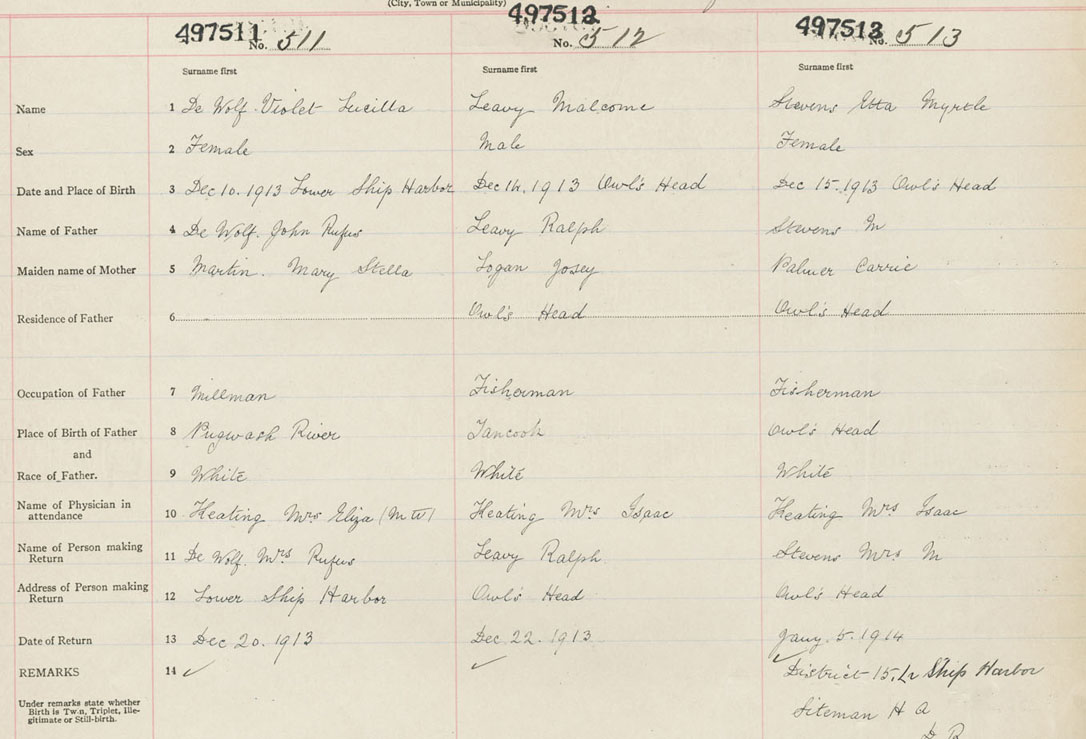 (City, Town or Municipality)
497511 No. 511 497512 No. 512 497513 No. 513
Surname first Surname first Surname first
Name 1 De Wolf Violet Lucilla Leavy Malcome Stevens Etta Myrtle
Sex 2 Female Male Female
Date and Place of Birth 3 Dec 10. 1913 Lower Ship Harbor Dec 14. 1913 Owl's Head Dec 15. 1913 Owl's Head
Name of Father 4 De Wolf. John Rufus Leavy Ralph Stevens M
Maiden name of Mother 5 Martin. Mary Stella Logan Josey Palmer Carrie
Residence of Father 6 Owl's Head Owl's Head
Occupation of Father 7 Millman Fisherman Fisherman
Place of Birth of Father 8 Pugwash River Tancook Owl's Head
and
Race of Father. 9 White White White
Name of Physician in
attendance 10 Keating Mrs Eliza (M W) Keating Mrs Isaac Keating Mrs Isaac
Name of Person making
Return 11 De Wolf. Mrs Rufus Leavy Ralph Stevens Mrs. M
Address of Person making
Return 12 Lower Ship Harbor Owl's Head Owl's Head
Date of Return 13 Dec 20. 1913 Dec. 22. 1913 Jany. 5. 1914
REMARKS 14 ✓ ✓ ✓ District 15, Lr Ship Harbor
Under remarks state whether
Birth is Twin, Triplet, Ille-
gitimate or Still-birth.
Siteman H A
D R